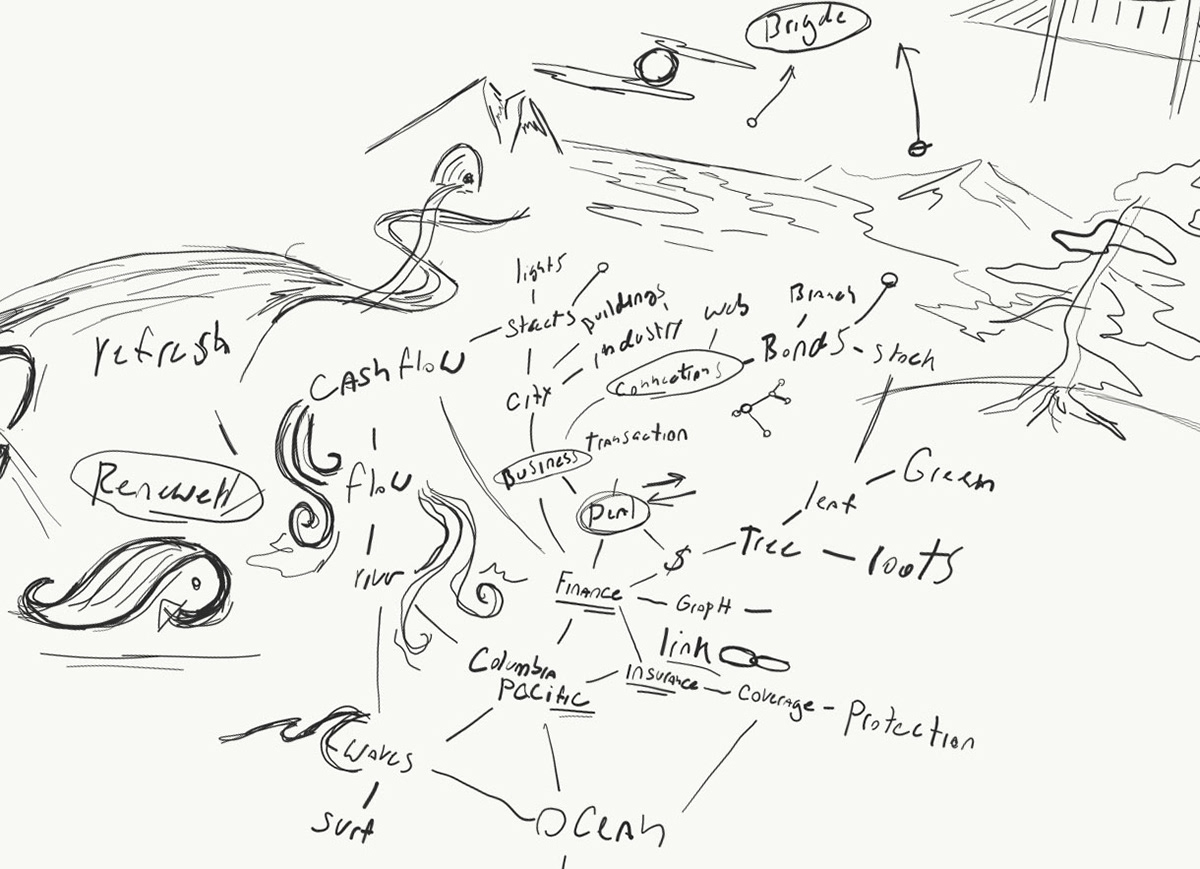 Brigde
lights
Buildings
Branch
Streets
industry
web
refresh
Bonds
Stock
Cashflow
Connections
City
transaction
Business
Green
Renewell
flow
leaf
Deal
Tree
roots
$
river
Finance
Graph
link
Columbia
Pacific
Insurance
Coverage
Protection
Waves
Surf
Ocean